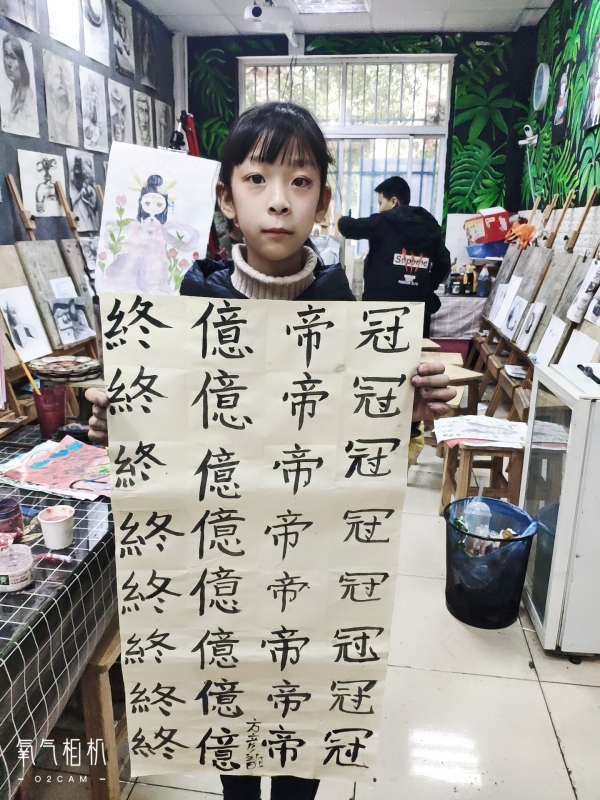 冠冠冠冠冠冠冠冠
帝帝帝帝帝帝帝帝
億億億億億億億億
終終終終終終終終
Supreme
氧气相机
– O2CAM –